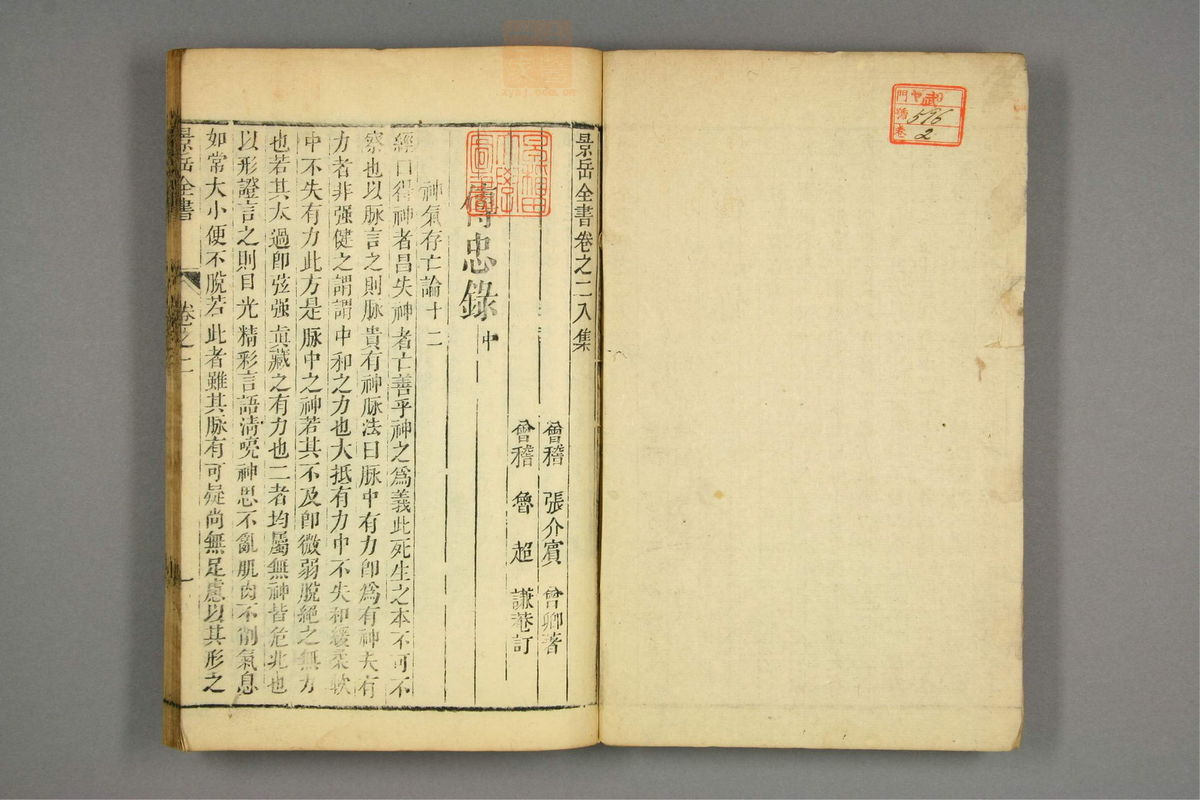 門 武
號 596
卷 2
景岳全書卷之二入集
會稽 張介賓 會卿著
會稽 魯超 謙菴訂
傳忠錄 中
神氣存亡論 十二
經曰得神者昌失神者亡善乎神之爲義此死生之本不可不
察也以脉言之則脉貴有神脉法曰脉中有力卽爲有神夫有
力者非强健之謂謂中和之力也大抵有力中不失和緩柔軟
中不失有力此方是脉中之神若其不及卽微弱脫絶之無力
也若其太過卽弦强眞藏之有力也二者均屬無神皆危兆也
以形證言之則目光精彩言語清亮神思不亂肌肉不削氣息
如常大小便不脫若此者雖其脉有可疑尚無足慮以其形之
景岳全書
卷之二
一